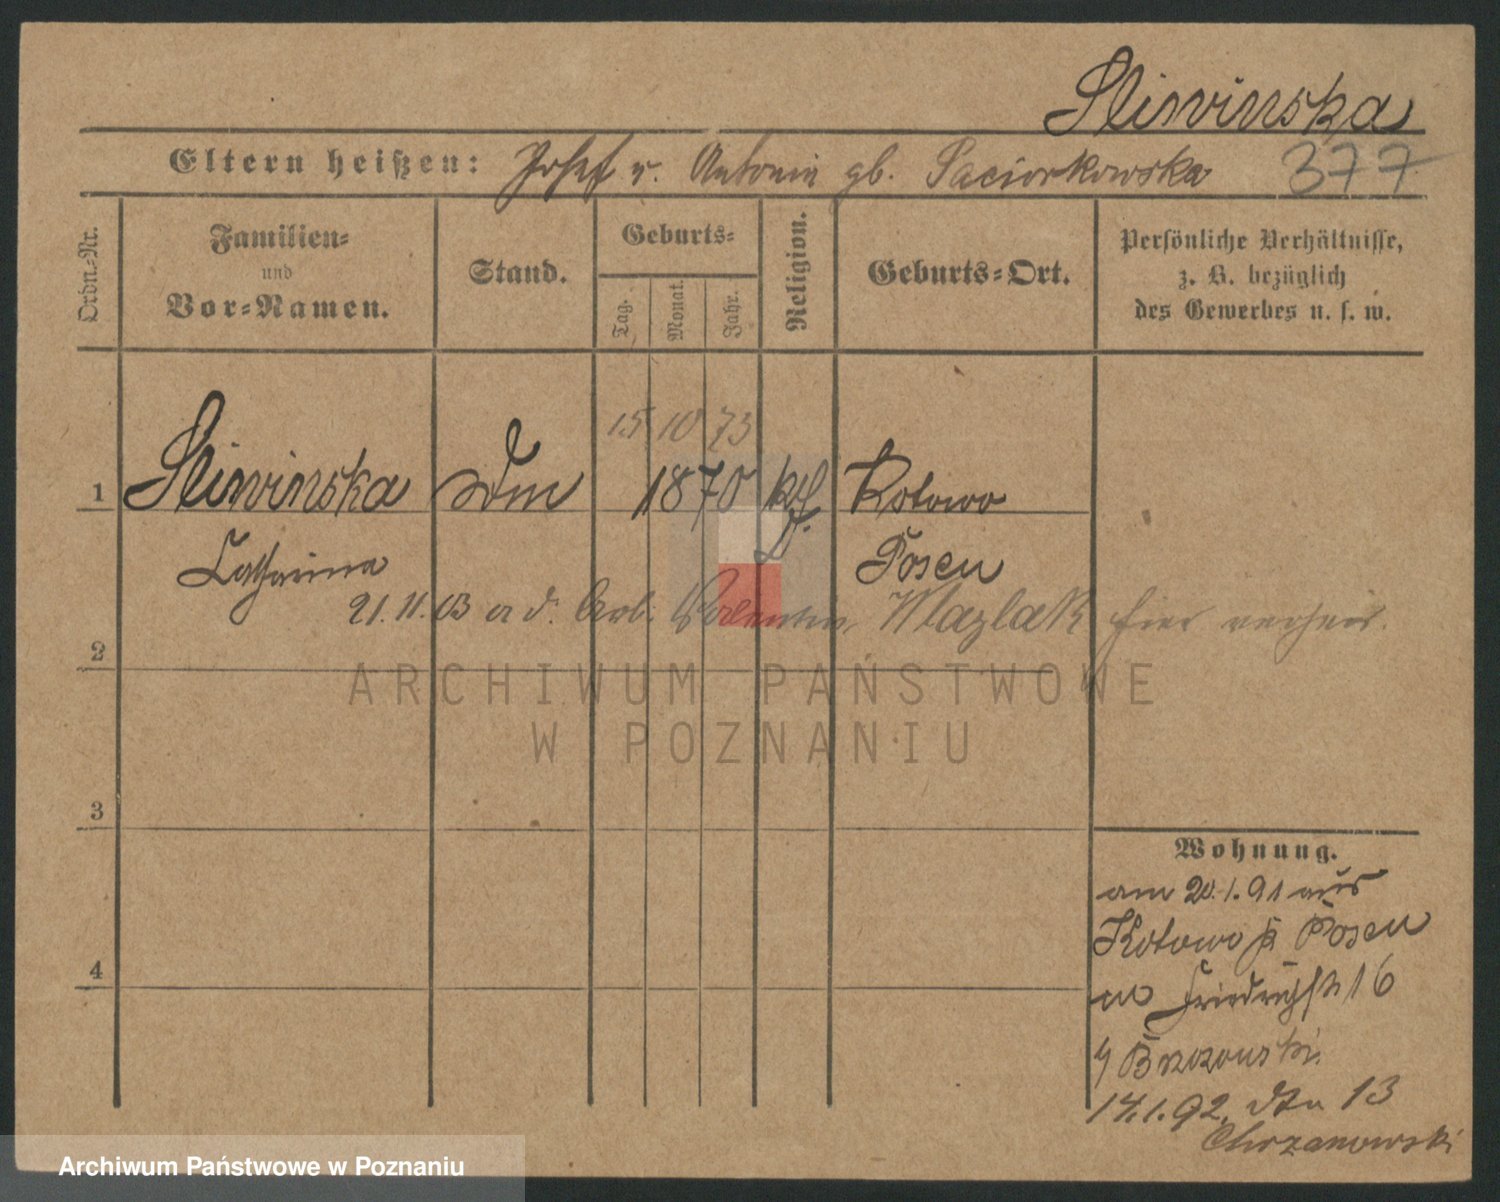 Sliwinska
Eltern heißen: Josef u. Antonie gb. Paciorkowska 377
Ordn.-Nr.
Familien-
und
Vor-Namen.
Stand.
Geburts-
Tag.
Monat.
Jahr.
Religion.
Geburts-Ort.
Persönliche Verhältnisse,
z. B. bezüglich
des Gewerbes u. s. w.
15 10 73
1 Sliwinska 1870 kth. Kotowo
Catharina Posen
21.11.03 a d. Arb. Valentin Mazlak hier verheir.
2
3
Wohnung.
am 20.1.91 aus
Kotowo Posen
4
Friedrichstr 16
Brzozowski.
17.1.92. 13
Chrzanowski
ARCHIWUM PAŃSTWOWE
W POZNANIU
Archiwum Państwowe w Poznaniu